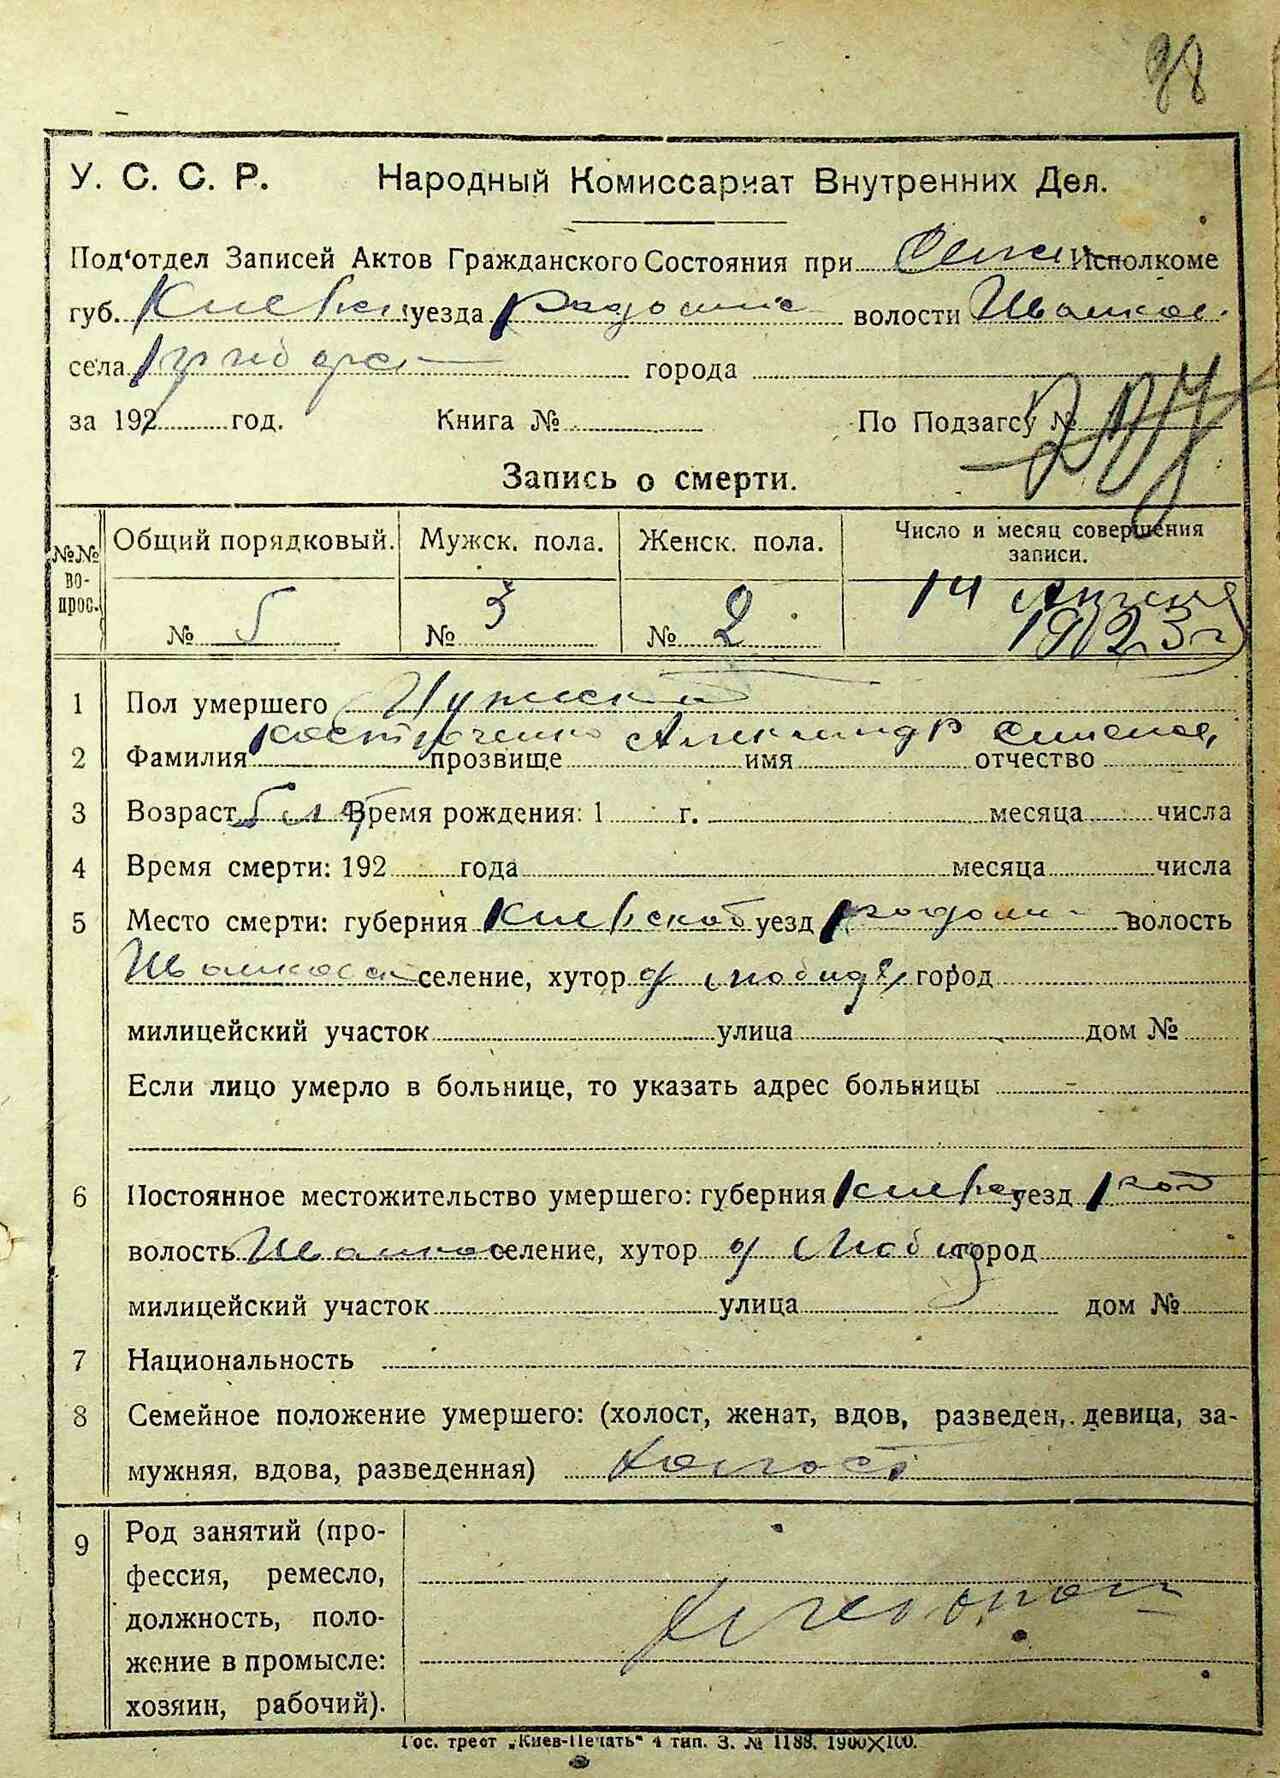 98
У. С. С. Р. Народный Комиссариат Внутренних Дел.
Под'отдел Записей Актов Гражданского Состояния при Исполкоме
губ. Киевск уезда Радомис волости
села города
за 192 год. Книга № По Подзагсу №
Запись о смерти.
№№ вопрос. Общий порядковый. Мужск. пола. Женск. пола. Число и месяц совершения записи.
№ 5 № 3 № 2 14 Апреля 1923 г
1 Пол умершего Мужской
2 Фамилия прозвище имя Александр отчество
3 Возраст 5 лет Время рождения: 1 г. месяца числа
4 Время смерти: 192 года месяца числа
5 Место смерти: губерния Киевской уезд Радомис волость
селение, хутор город
милицейский участок улица дом №
Если лицо умерло в больнице, то указать адрес больницы
6 Постоянное местожительство умершего: губерния Киевск уезд Рад
волость селение, хутор город
милицейский участок улица дом №
7 Национальность
8 Семейное положение умершего: (холост, женат, вдов, разведен, девица, за-
мужняя, вдова, разведенная) холост
9 Род занятий (про-
фессия, ремесло,
должность, поло-
жение в промысле:
хозяин, рабочий).
Гос. трест „Киев-Печать“ 4 тип. З. № 1188. 1900X100.